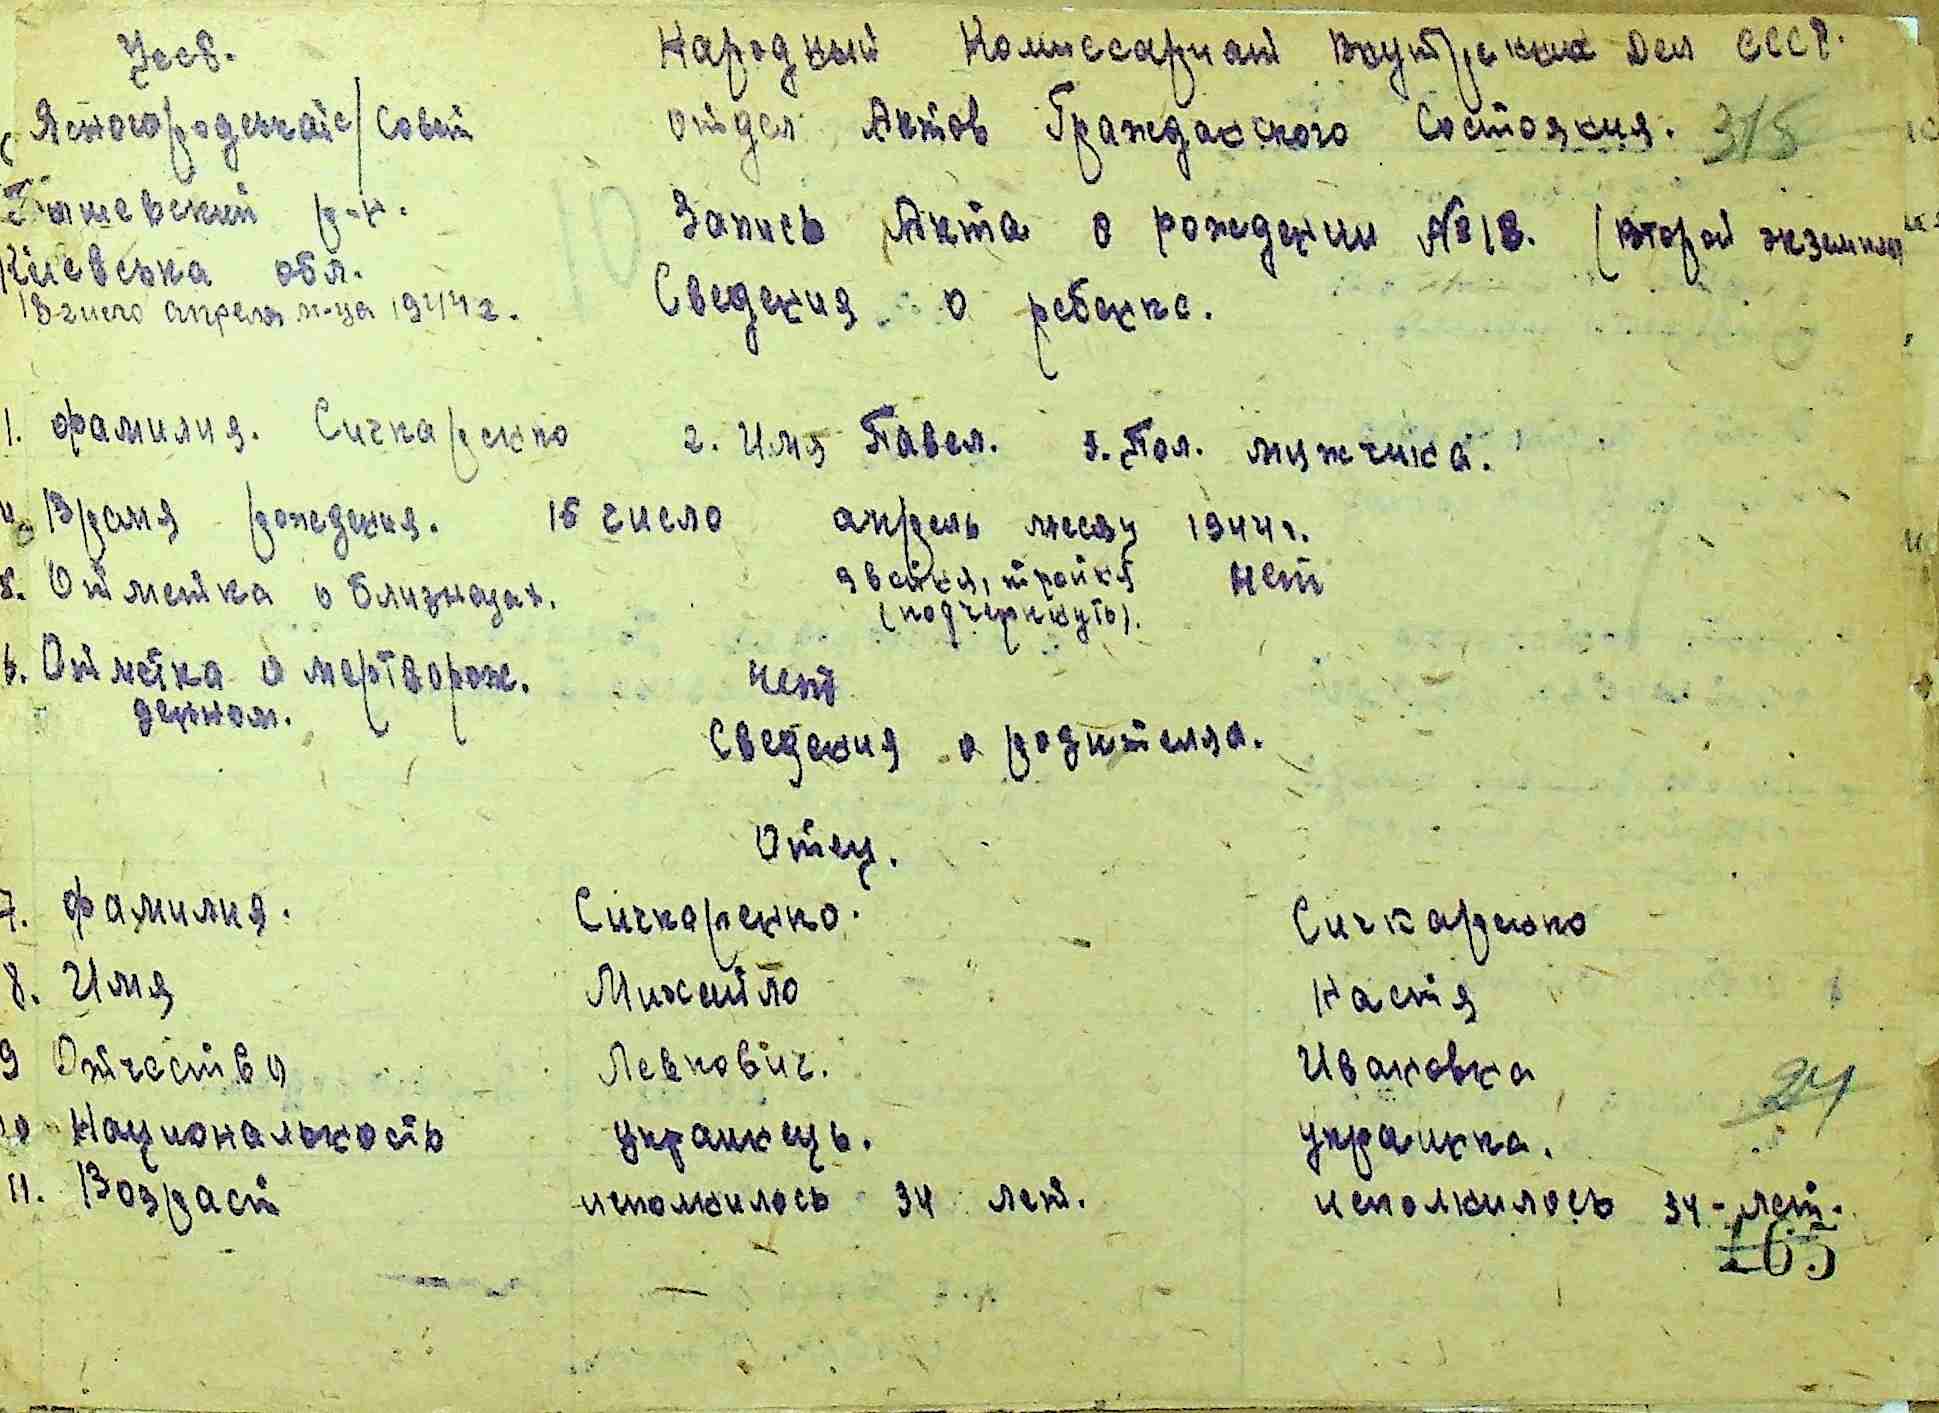 Усср. Народный Комиссариат Внутрених Дел СССР.
Ясногородська іс/Совет отдел Актов Гражданского Состояния. 315
р-н. Запись Акта о рождении №18. (второй экземпляр
Київська обл. Сведения о ребенке.
18 число апреля м-ца 1944 г.
1. Фамилия. Сичкаренко 2. Имя Павел. 3. Пол. мужчина.
4. Время рождения. 15 число апрель месяц 1944 г.
5. Отметка о близнецах. двойня, тройня нет
(подчеркнуть).
6. Отметка о мертворож. нет
денном.
Сведения о родителях.
Отец.
7. Фамилия. Сичкаренко. Сичкаренко
8. Имя Михайло Настя
9 Отчество Левкович. Ивановна
10 Национальность украинець. украинка.
24
11. Возраст исполнилось 34 лет. исполнилось 34-лет.
165